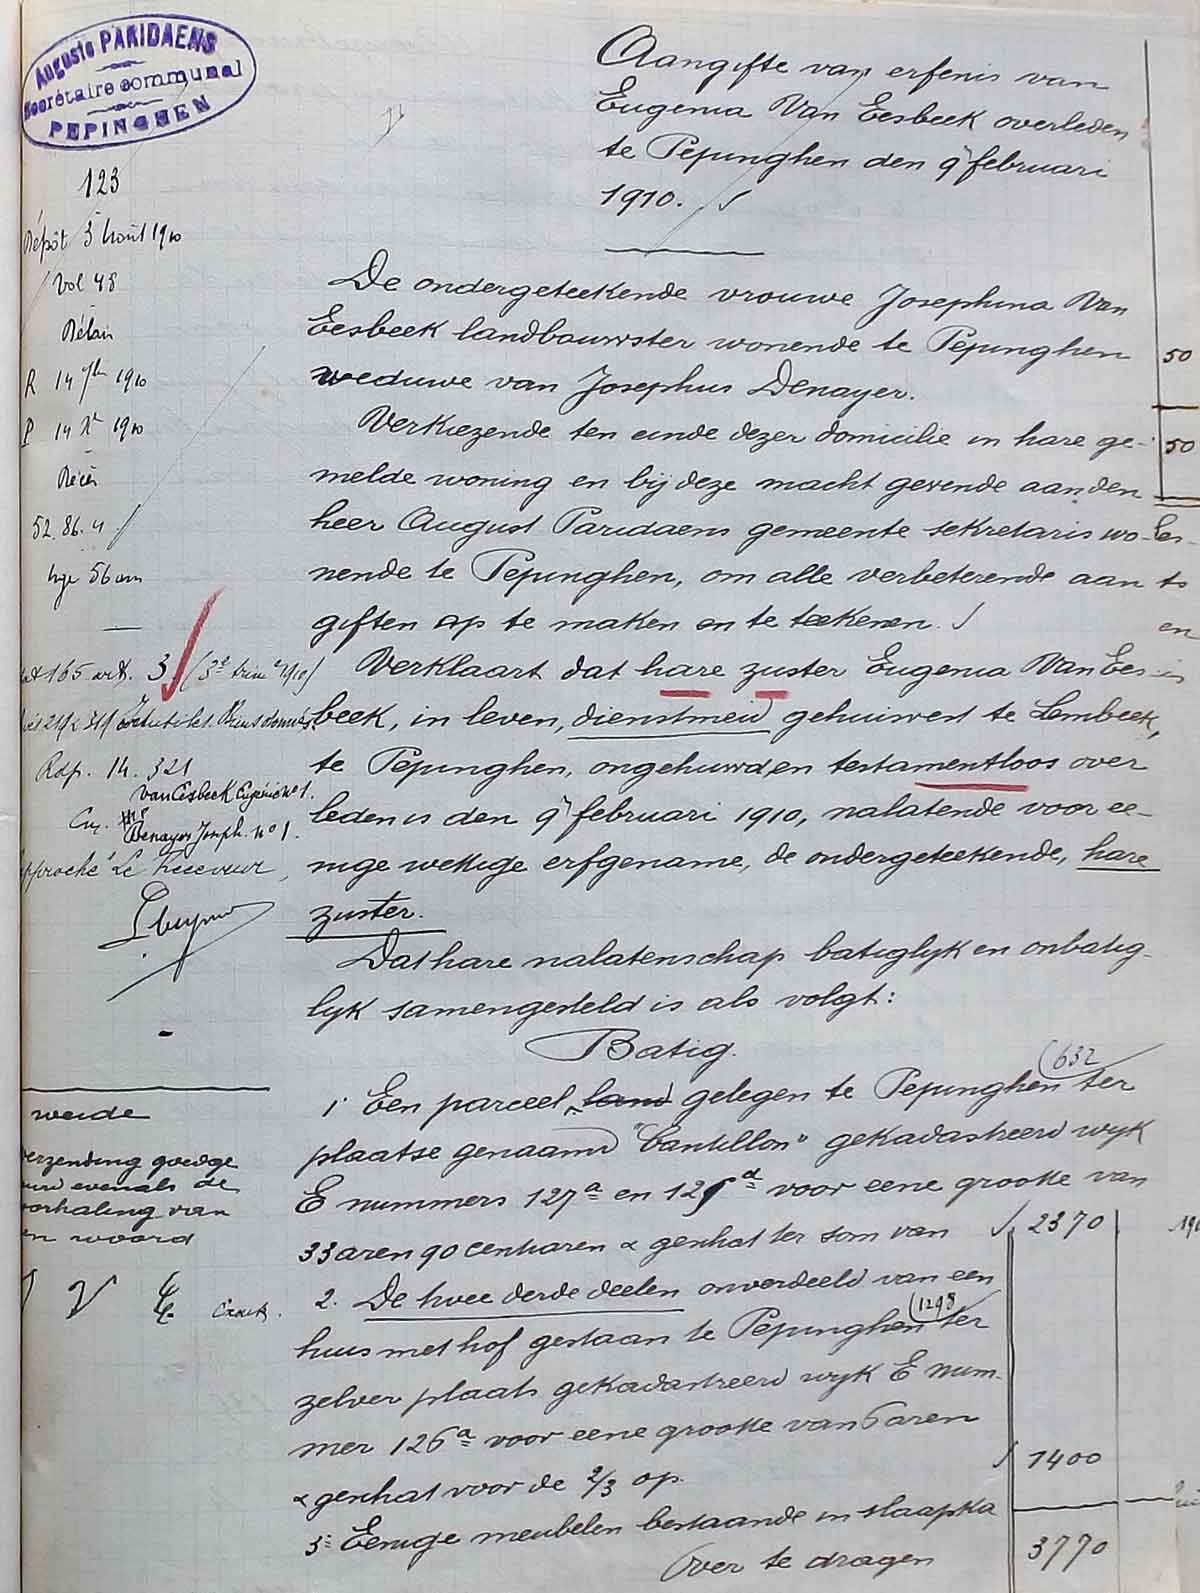 Auguste PARIDAENS
Secrétaire communal
PEPINGHEN
Aangifte van erfenis van
Eugenia Van Eesbeek overleden
te Pepinghen den 9 februari
1910.
123
Dépôt 3 Août 1910
Vol 48
Délai
R 14 7bre 1910
P 14 Xr 1910
Décès
52. 86. 4
De ondergeteekende vrouwe Josephina Van
Eesbeek landbouwster wonende te Pepinghen
weduwe van Josephus Denayer.
Verkiezende ten einde dezer domicilie in hare ge-
melde woning en bij deze macht gevende aan den
heer August Paridaens gemeente sekretaris wo-
nende te Pepinghen, om alle verbeterende aan
giften op te maken en te teekenen.
Verklaart dat hare zuster Eugenia Van Ees-
beek, in leven, dienstmeid gehuisvest te Lembeek,
te Pepinghen, ongehuwd en testamentloos over
leden is den 9 februari 1910, nalatende voor ee-
nige wettige erfgename, de ondergeteekende, hare
zuster.
Dat hare nalatenschap batiglijk en onbatig-
lijk samengesteld is als volgt:
Batig.
165 art. 3 (3e trim e 1910)
Rdp. 14. 321
Van Eesbeek Eugénie no 1.
Denayer Joseph. no 1.
Le Receveur
50
50
632
1 Een parceel land gelegen te Pepinghen ter
plaatse genaamd "Cantillon" gekadastreerd wijk
E nummers 127a en 125d voor eene grootte van
33 aren 90 centiaren geschat ter som van 2370
2. De twee derde deelen onverdeeld van een
1298
huis met hof gestaan te Pepinghen ter
zelver plaats gekadastreerd wijk E num-
mer 126a voor eene grootte van 6 aren
geschat voor de 2/3 op. 1400
3= Eenige meubelen bestaande in slaapka
Over te dragen 3770
weide
verzending goedge
evenals de
doorhaling van
een woord